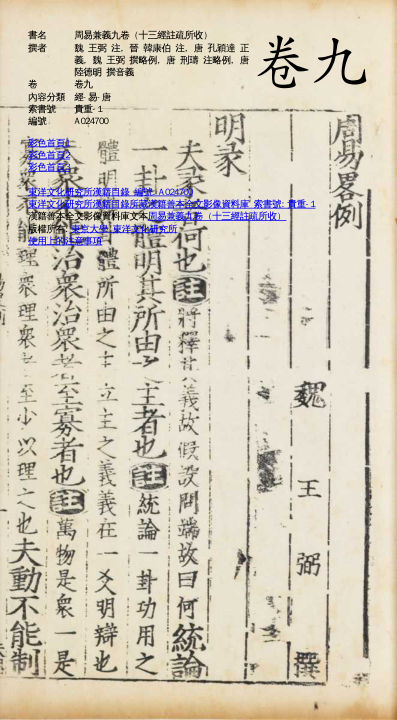 書名　周易兼義九卷（十三經註疏所收）
撰者　魏 王弼 注、晉 韓康伯 注、唐 孔穎達 正
義、魏 王弼 撰略例、唐 邢璹 注略例、唐
陸德明 撰音義
卷　卷九
內容分類　經-易-唐
索書號　貴重-1
編號　A024700
卷九
彩色首頁1
彩色首頁2
彩色首頁3
東洋文化研究所漢籍目錄 編號: A024700
東洋文化研究所漢籍目錄所藏漢籍善本全文影像資料庫 索書號: 貴重-1
漢籍善本全文影像資料庫文本周易兼義九卷（十三經註疏所收）
版權所有: 東京大學 東洋文化研究所
使用上的注意事項
周易畧例
魏 王 弼 撰
明彖
夫彖者何也註將釋其義故假設問端故曰何統論
一卦之體明其所由之主者也註統論一卦功用之
體明 體所由之主立主之義義在一爻明辯也
夫衆不能治衆治衆者至寡者也註萬物是衆一是
寡衆不能理衆理衆 至少以理之也夫動不能制